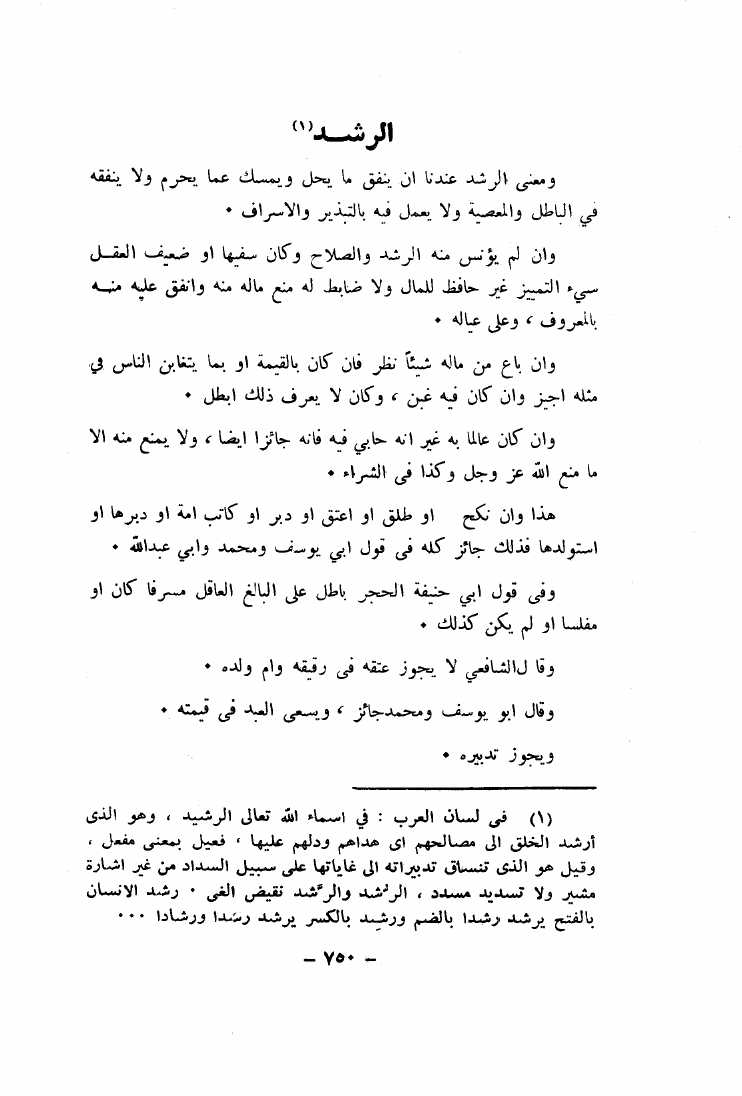 الرشـــد(١)
ومعنى الرشد عندنا ان ينفق ما يحل ويمسك عما يحرم ولا ينفقه
في الباطل والمعصية ولا يعمل فيه بالتبذير والاسراف ٠
وان لم يؤنس منه الرشد والصلاح وكان سفيها او ضعيف العقـل
سيء التمييز غير حافظ للمال ولا ضابط له منع ماله منه وانفق عليه منـه
بالمعروف ، وعلى عياله ٠
وان باع من ماله شيئاً نظر فان كان بالقيمة او بما يتغابن الناس في
مثله اجيز وان كان فيه غبن ، وكان لا يعرف ذلك ابطل ٠
وان كان عالما به غير انه حابي فيه فانه جائزا ايضا ، ولا يمنع منه الا
ما منع الله عز وجل وكذا فى الشراء ٠
هذا وان نكح او طلق او اعتق او دبر او كاتب امة او دبرها او
استولدها فذلك جائز كله فى قول ابي يوسف ومحمد وابي عبدالله ٠
وفى قول ابي حنيفة الحجر باطل على البالغ العاقل مسرفا كان او
مفلسا او لم يكن كذلك ٠
وقا لالشافعي لا يجوز عتقه فى رقيقه وام ولده ٠
وقال ابو يوسف ومحمدجائز ، ويسعى العبد فى قيمته ٠
ويجوز تدبيره ٠
(١) فى لسان العرب : في اسماء الله تعالى الرشيد ، وهو الذى
أرشد الخلق الى مصالحهم اى هداهم ودلهم عليها ، فعيل بمعنى مفعل ،
وقيل هو الذى تنساق تدبيراته الى غاياتها على سبيل السداد من غير اشارة
مشير ولا تسديد مسدد ، الرُشد والرَشد نقيض الغى ٠ رشد الانسان
بالفتح يرشد رشدا بالضم ورشِد بالكسر يرشد رشَدا ورشادا ٠٠٠
– ٧٥٠ –